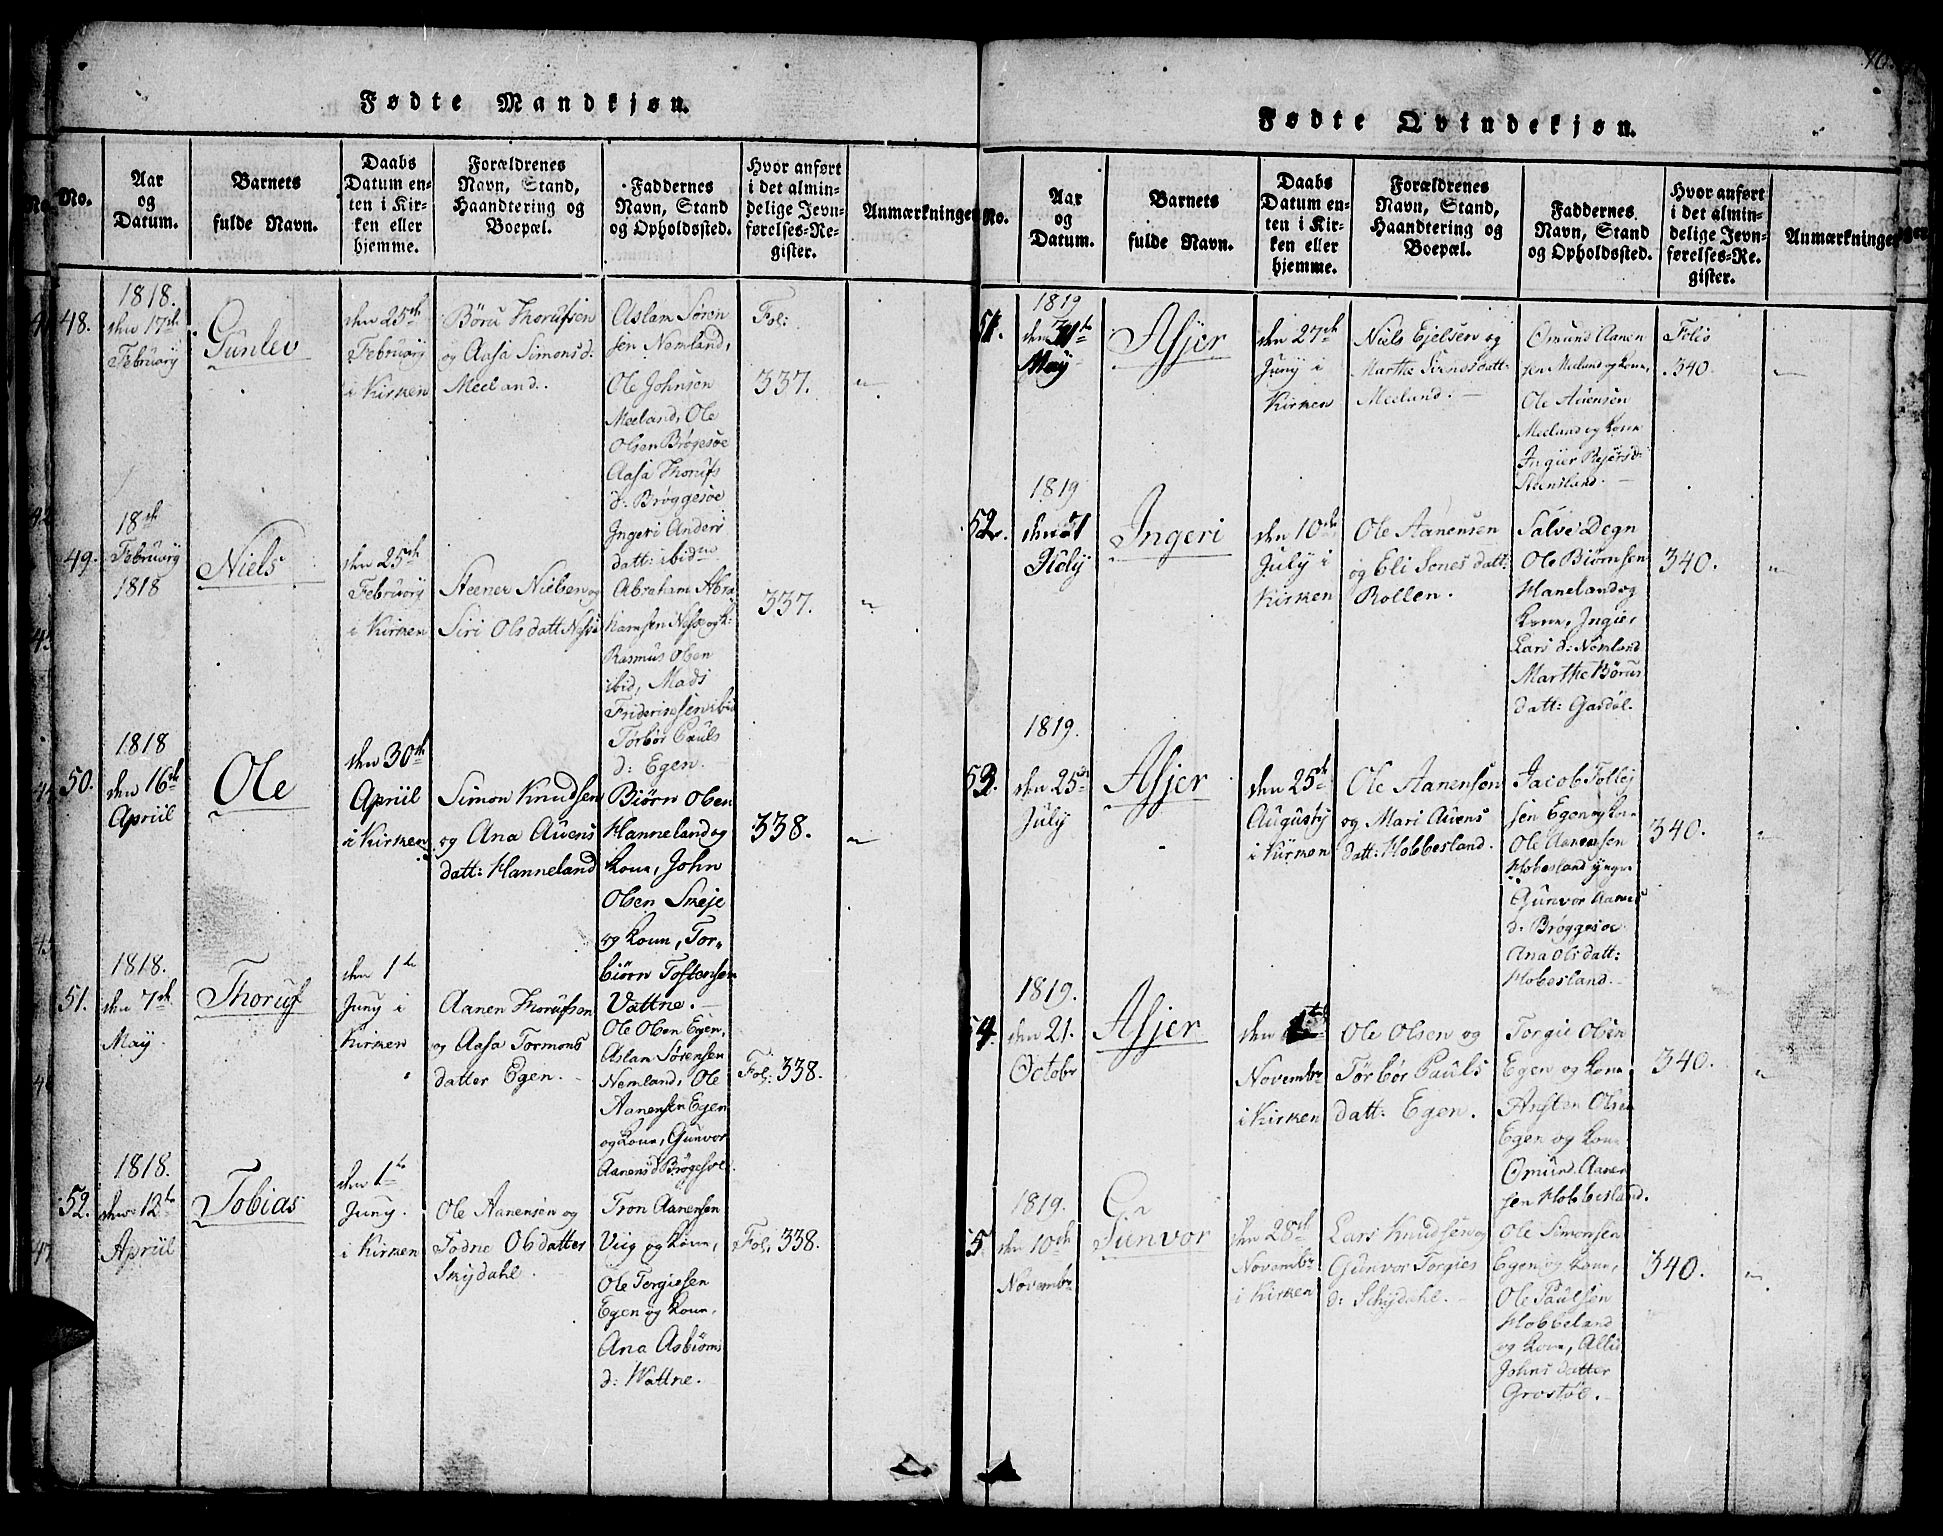 Fødte Mandkjøn.
No.
Aar
og
Datum.
Barnets
fulde Navn.
Daabs
Datum en-
ten i Kir-
ken eller
hjemme.
Forældrenes
Navn, Stand,
Haandtering og
Boepæl.
Faddernes
Navn, Stand
og Opholdssted.
Hvor anført
i det almin-
delige Jevn-
førelses-Re-
gister.
Anmærkninger
48.
1818.
den 17de
Februarij
Gunlev
den 25de
Februarij
i Kirken
Børu Thorufsen
og Aasa Simonsd:
Meeland.
Aslam Sören
sen Nemland,
Ole Johnsen
Meeland, Ole
Olsen Brøgesøe
Aasa Thorufs
d: Brøggesøe
Ingeri Anderi
datt: ibidm
Fol:
337.
49.
18de
Februarij
1818
Niels
den 25de
Februarij
i Kirken
Steener Nielsen og
Siri Olsdatt Nesse
Abraham Abra
hamsen Nesse og k:
Rasmus Olsen
ibid, Mads
Friderichsen ibid
Tørbør Pauls
d: Egen.
337.
50.
1818
den 16de
Apriil
Ole
den 30te
Apriil
i Kirken
Simon Knudsen
og Ana Auens
datt: Hanneland
Biørn Olsen
Hanneland og
Kone, John
Olsen Skeje
og Kone, Tor-
biørn Tostensen
Vattne.
338.
51.
1818.
den 7de
May.
Thoruf
den 1te
Juny i
Kirken
Aanen Thorufsen
og Aasa Tormons
datter Egen.
Ole Olsen Egen,
Aslam Sørensen
Nemland, Ole
Aanensen Egen
og Kone, Gunvor
Aanensd Brøgesøe.
Fol: 338.
52.
1818.
den 12te
Apriil
Tobias
den 1te
Juny.
i Kirken
Ole Aanensen og
Todne Olsdatter
Skijdahl.
Tron Aanensen
Viig og Kone,
Ole Torgiesen
Egen og Kone,
Ana Asbiørns
d: Wattne.
Fol: 338.
Fødte Qvindekjøn.
No.
Aar
og
Datum.
Barnets
fulde Navn.
Daabs
Datum en-
ten i Kir-
ken eller
hjemme.
Forældrenes
Navn, Stand,
Haandtering og
Boepæl.
Faddernes
Navn, Stand
og Opholdssted.
Hvor anført
i det almin-
delige Jevn-
førelses-Re-
gister.
Anmærkninger
51.
1819
den 31te
May
Asjer
den 27de
Juny i
Kirken
Niels Ejelsen og
Marthe Svensdatt:
Meeland.
Omund Aanen
sen Meeland og Kone,
Ole Auensen
Meeland og Kone
Ingier Rejersd:
Steensland.
Folio
340.
52.
1819
Ingeri
den 10de
July i
Kirken
Ole Aanensen
og Eli Sonesdatt:
Rollen.
Salve Degn
Ole Biørnsen
Haneland og
Kone, Ingier
Lars d: Nemland
Marthe Børus
datt: Gasdøl.
340.
53.
1819.
den 25de
July
Asjer
den 25de
Augusty
i Kirken
Ole Aanensen
og Mari Auens
datt: Hobbesland.
Jacob Follej
sen Egen og Kone
Ole Aanensen
Hobesland yngre
Gunvor Aanens
d: Brøggesøe
Ana Olsdatt:
Hobesland.
340.
54.
1819.
den 21.
Octobr
Asjer
Novembr
i Kirken
Ole Olsen og
Tørbør Pauls
datt: Egen.
Torgie Olsen
Egen og Kone
Olsen
Egen og Kone
Omund Aanen
sen Hobbesland.
340.
5
1819.
den 10de
Novembr
Gunvor
den 28de
Novembr
i Kirken
Lars Knudsen og
Gunvor Torgies
d: Schijdahl.
Ole Simonsen
Egen og Kone,
Ole Paulsen
Hobbeland
og Kone, Allis
Johns datter
Grostøl.
340.